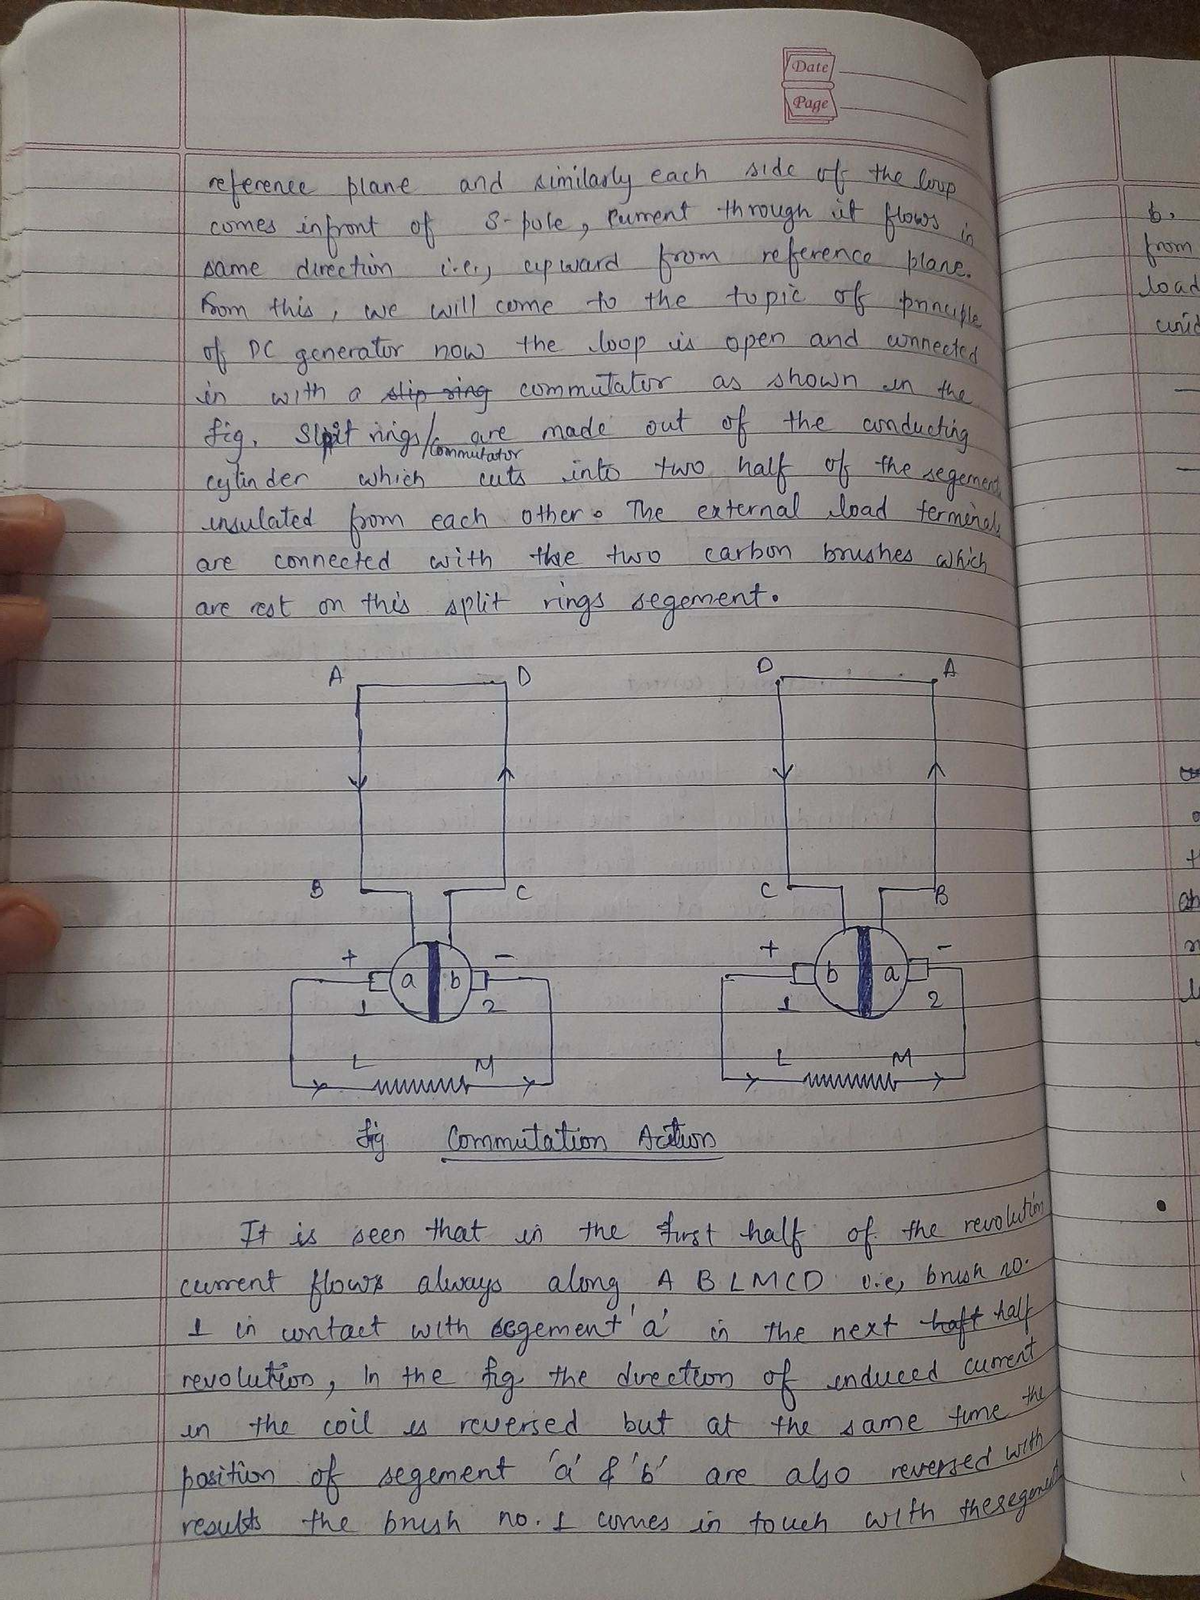 Date
Page
reference plane and similarly each side of the loop
comes infront of S-pole, Current through it flows in
same direction i.e., upward from reference plane.
From this, we will come to the topic of principle
of DC generator now the loop is open and connected
in with a slip ring commutator as shown in the
fig. Split rings/commutator are made out of the conducting
cylinder which cuts into two half of the segement
insulated from each other. The external load terminals
are connected with the two carbon brushes which
are rest on this split rings segement.
A D D A
B C C B
+ a b - + b a -
1 2 1 2
L M L M
fig Commutation Action
It is seen that in the first half of the revolution
current flows always along A B L M C D i.e, brush no.
1 in contact with segement 'a' in the next haft half
revolution, In the fig the direction of induced current
in the coil is reversed but at the same time the
position of segement 'a' & 'b' are also reversed with
results the brush no. 1 comes in touch with the segement
b.
from
load